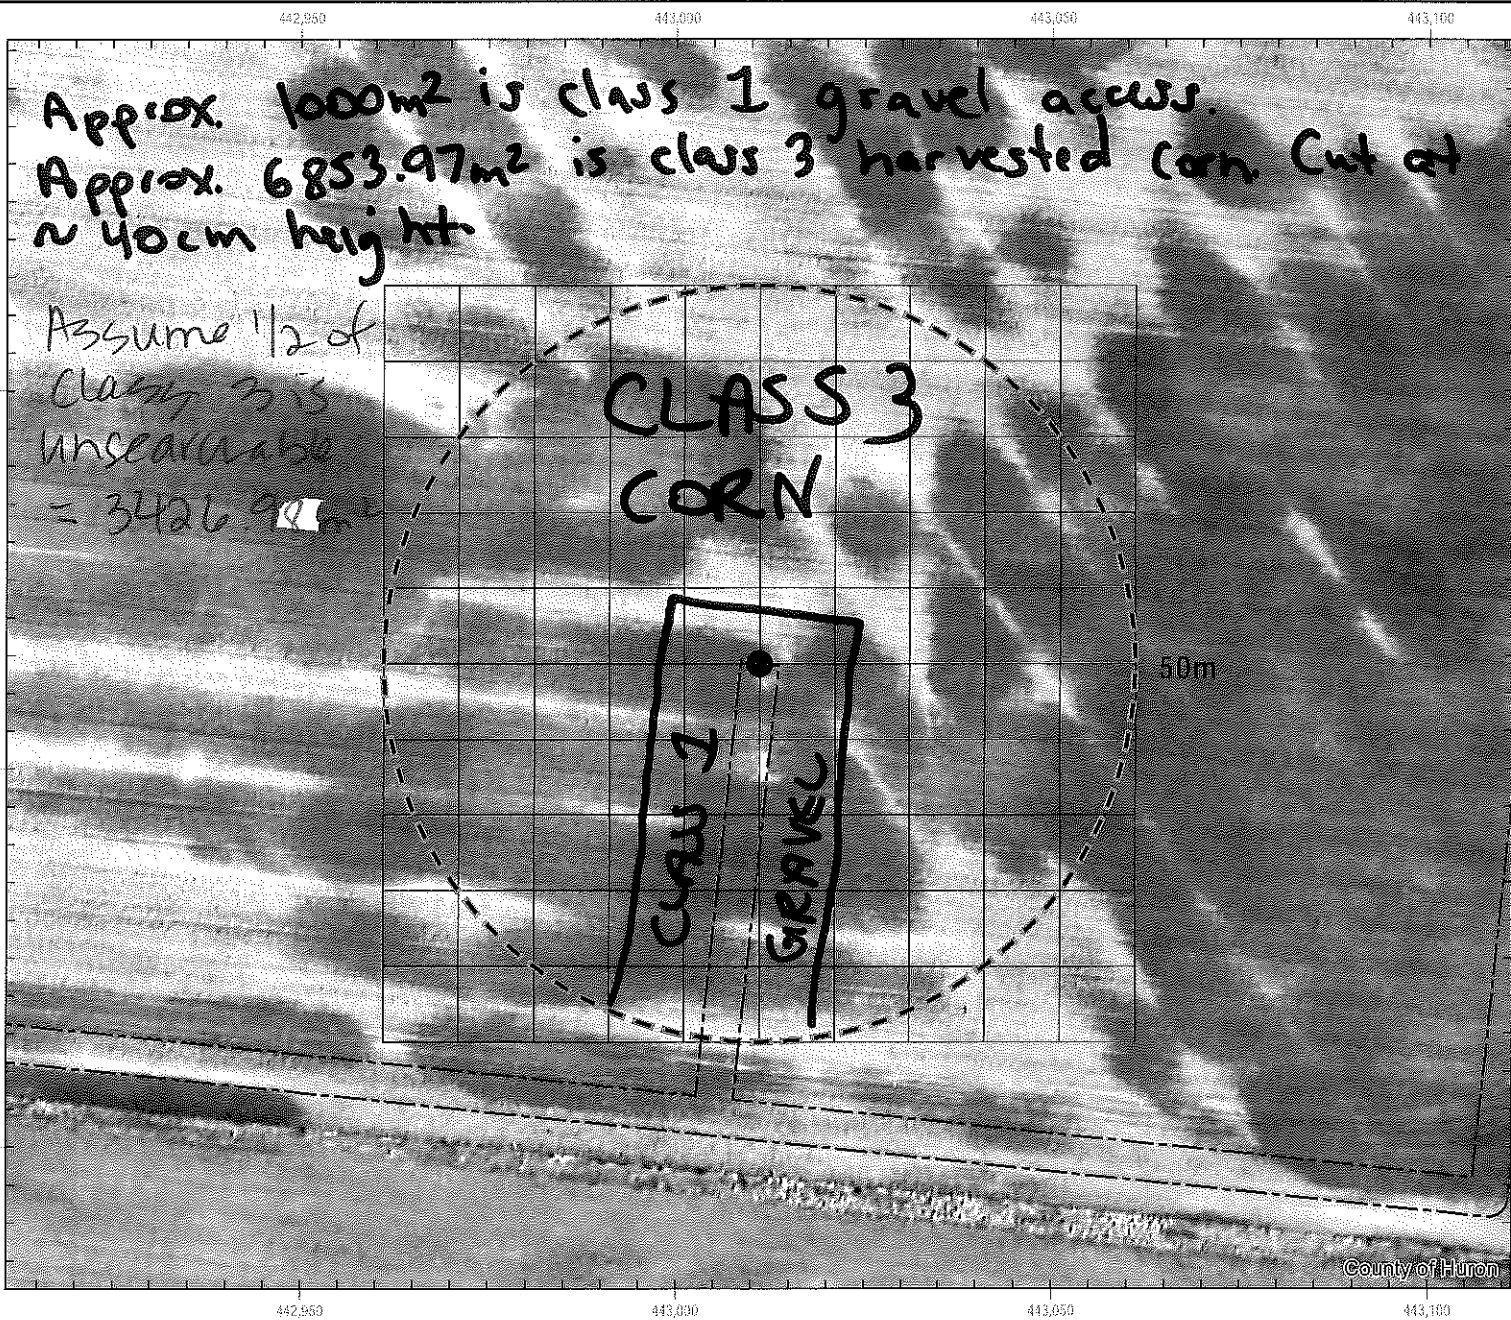 442,950 443,000 443,050 443,100
Approx. 1000m² is class 1 gravel access.
Approx. 6853.97m² is class 3 harvested corn. Cut at
~ 40cm height
Assume 1/2 of
Class 3 is
unsearchable
= 3426.98m²
CLASS 3
CORN
50m
CLASS 1
GRAVEL
County of Huron
442,950 443,000 443,050 443,100